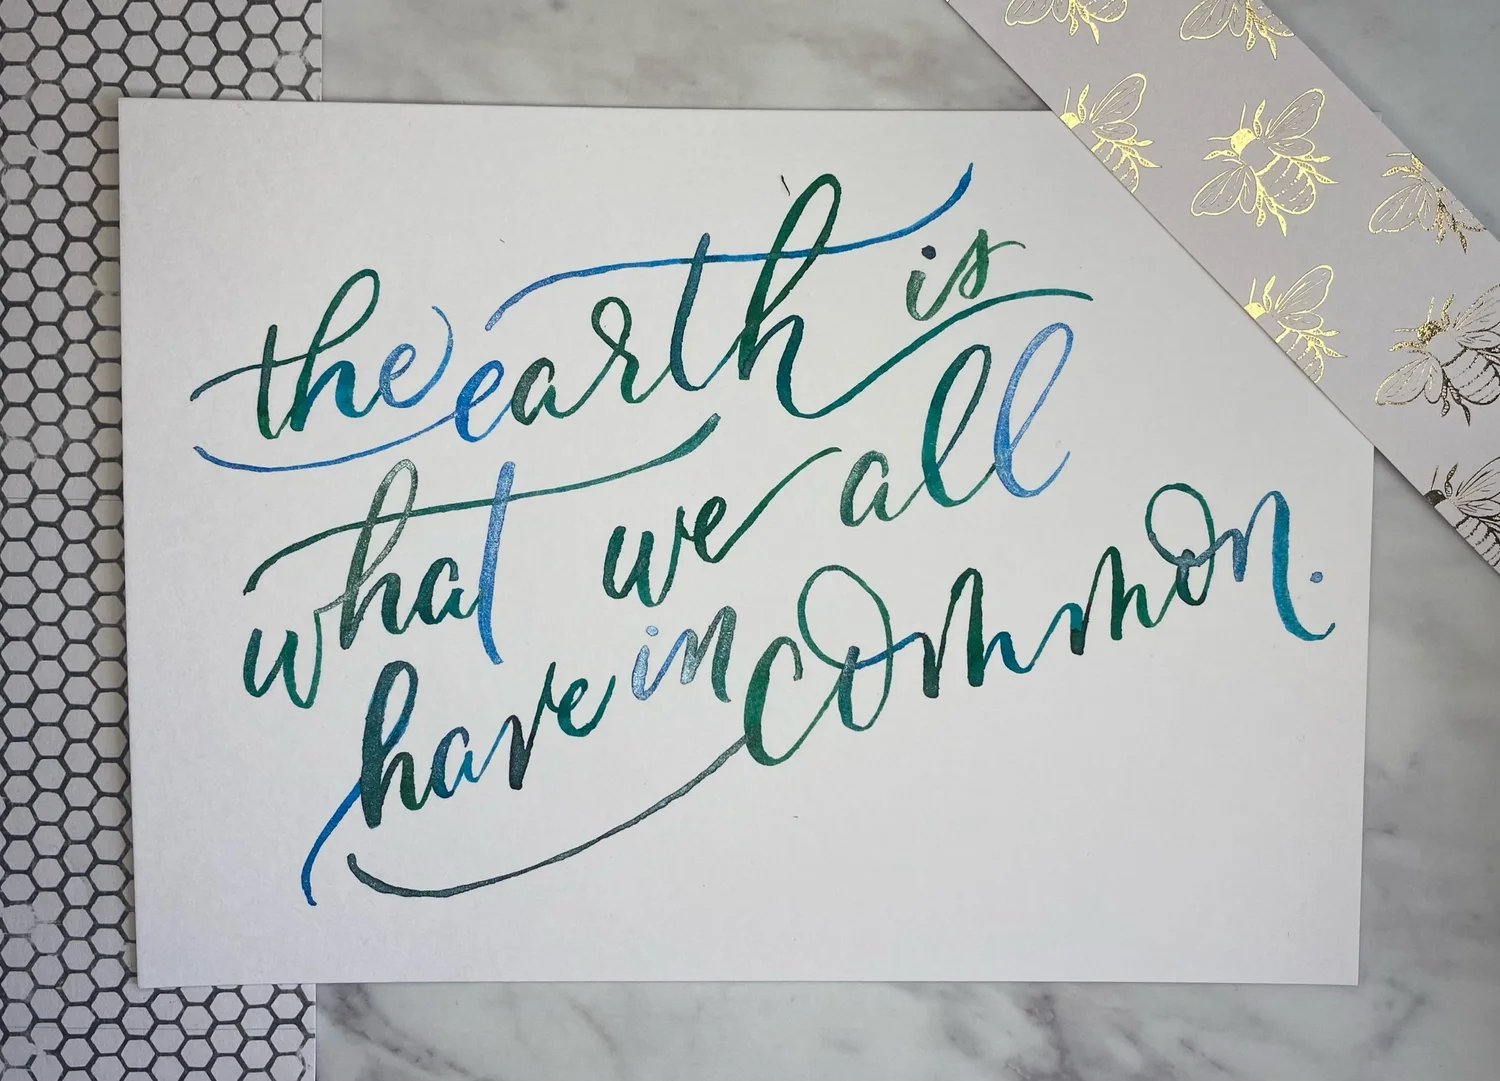 the earth is
what we all
have in common.